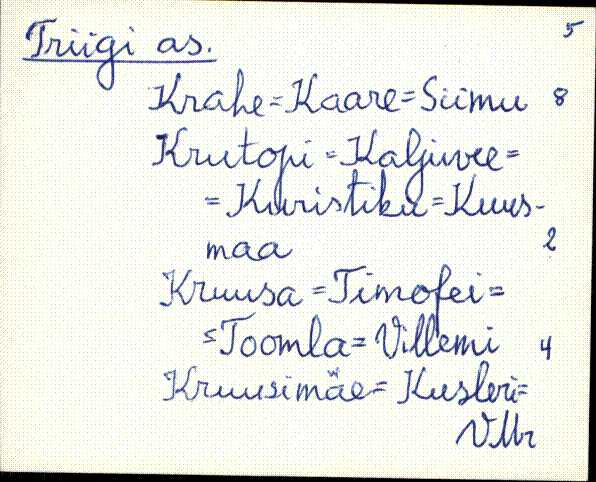 Triigi as. 5
Krahe=Kaare=Siimu 8
Krutopi=Kaljuvee=
=Kuristiku=Kuus-
maa 2
Kruusa=Timofei=
=Toomla=Villemi 4
Kruusimäe=Kusleri=